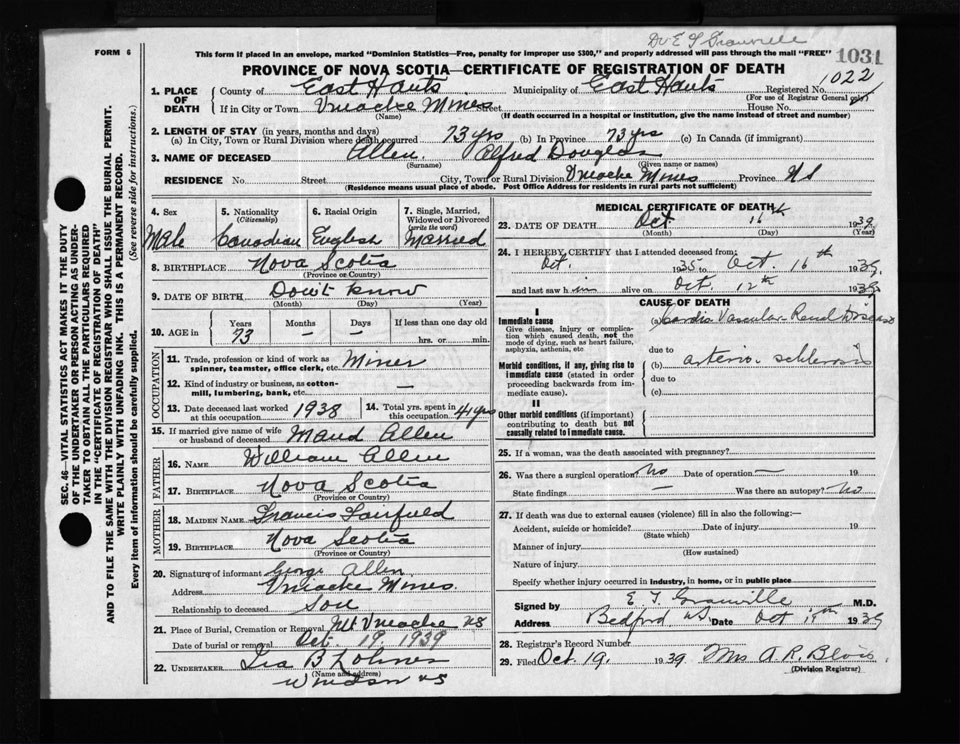 FORM 6
Dr E T Granville
This form if placed in an envelope, marked "Dominion Statistics—Free, penalty for improper use $300," and properly addressed will pass through the mail "FREE"
1031
PROVINCE OF NOVA SCOTIA—CERTIFICATE OF REGISTRATION OF DEATH
1. PLACE OF DEATH
County of East Hants Municipality of East Hants Registered No. 1022
(For use of Registrar General only)
If in City or Town Uniacke Mines Street House No.
(Name) (If death occurred in a hospital or institution, give the name instead of street and number)
2. LENGTH OF STAY (in years, months and days)
(a) In City, Town or Rural Division where death occurred 73 yrs (b) In Province 73 yrs (c) In Canada (if immigrant)
3. NAME OF DECEASED Allen. Alfred Douglas
(Surname) (Given name or names)
RESIDENCE No. Street City, Town or Rural Division Uniacke Mines Province N S
(Residence means usual place of abode. Post Office Address for residents in rural parts not sufficient)
4. Sex 5. Nationality 6. Racial Origin 7. Single, Married,
(Citizenship) Widowed or Divorced
(write the word)
Male Canadian English Married
8. BIRTHPLACE Nova Scotia
(Province or Country)
9. DATE OF BIRTH Don't know
(Month) (Day) (Year)
10. AGE in Years Months Days If less than one day old
73 — — hrs. or min.
OCCUPATION
11. Trade, profession or kind of work as Miner
spinner, teamster, office clerk, etc.
12. Kind of industry or business, as cotton- —
mill, lumbering, bank, etc.
13. Date deceased last worked 1938 14. Total yrs. spent in 41 yrs
at this occupation this occupation
15. If married give name of wife Maud Allen
or husband of deceased
FATHER
16. NAME William Allen
17. BIRTHPLACE Nova Scotia
(Province or Country)
MOTHER
18. MAIDEN NAME Francis Fairfield
19. BIRTHPLACE Nova Scotia
(Province or Country)
20. Signature of informant George Allen
Address Uniacke Mines.
Relationship to deceased Son
21. Place of Burial, Cremation or Removal Mt Uniacke N S
Date of burial or removal Oct. 19. 1939
22. UNDERTAKER Ira B Lohnes
(Name and address)
Windsor N S
MEDICAL CERTIFICATE OF DEATH
23. DATE OF DEATH Oct 16th 1939
(Month) (Day) (Year)
24. I HEREBY CERTIFY that I attended deceased from:
Oct. 1935 to Oct. 16th 1939.
and last saw him alive on Oct. 12th 1939
CAUSE OF DEATH
I
Immediate cause
Give disease, injury or complication which caused death, not the mode of dying, such as heart failure, asphyxia, asthenia, etc
(a) Cardio Vascular-Renal Disease
due to
Morbid conditions, if any, giving rise to immediate cause (stated in order proceeding backwards from immediate cause).
(b) arterio-sclerosis
due to
(c)
II
Other morbid conditions (if important) contributing to death but not causally related to immediate cause.
25. If a woman, was the death associated with pregnancy?
26. Was there a surgical operation? No Date of operation — 19
State findings — Was there an autopsy? No
27. If death was due to external causes (violence) fill in also the following:—
Accident, suicide or homicide? Date of injury 19
(State which)
Manner of injury
(How sustained)
Nature of injury
Specify whether injury occurred in industry, in home, or in public place
Signed by E T Granville M.D.
Address Bedford N.S. Date Oct 1939
28. Registrar's Record Number
29. Filed Oct 19. 1939 Mrs A. R. Blois
(Division Registrar)
SEC. 46—VITAL STATISTICS ACT MAKES IT THE DUTY
OF THE UNDERTAKER OR PERSON ACTING AS UNDER-
TAKER TO OBTAIN ALL THE PARTICULARS REQUIRED
IN THE "CERTIFICATE OF REGISTRATION OF DEATH"
AND TO FILE THE SAME WITH THE DIVISION REGISTRAR WHO SHALL ISSUE THE BURIAL PERMIT.
WRITE PLAINLY WITH UNFADING INK. THIS IS A PERMANENT RECORD.
Every item of information should be carefully supplied. (See reverse side for instructions.)